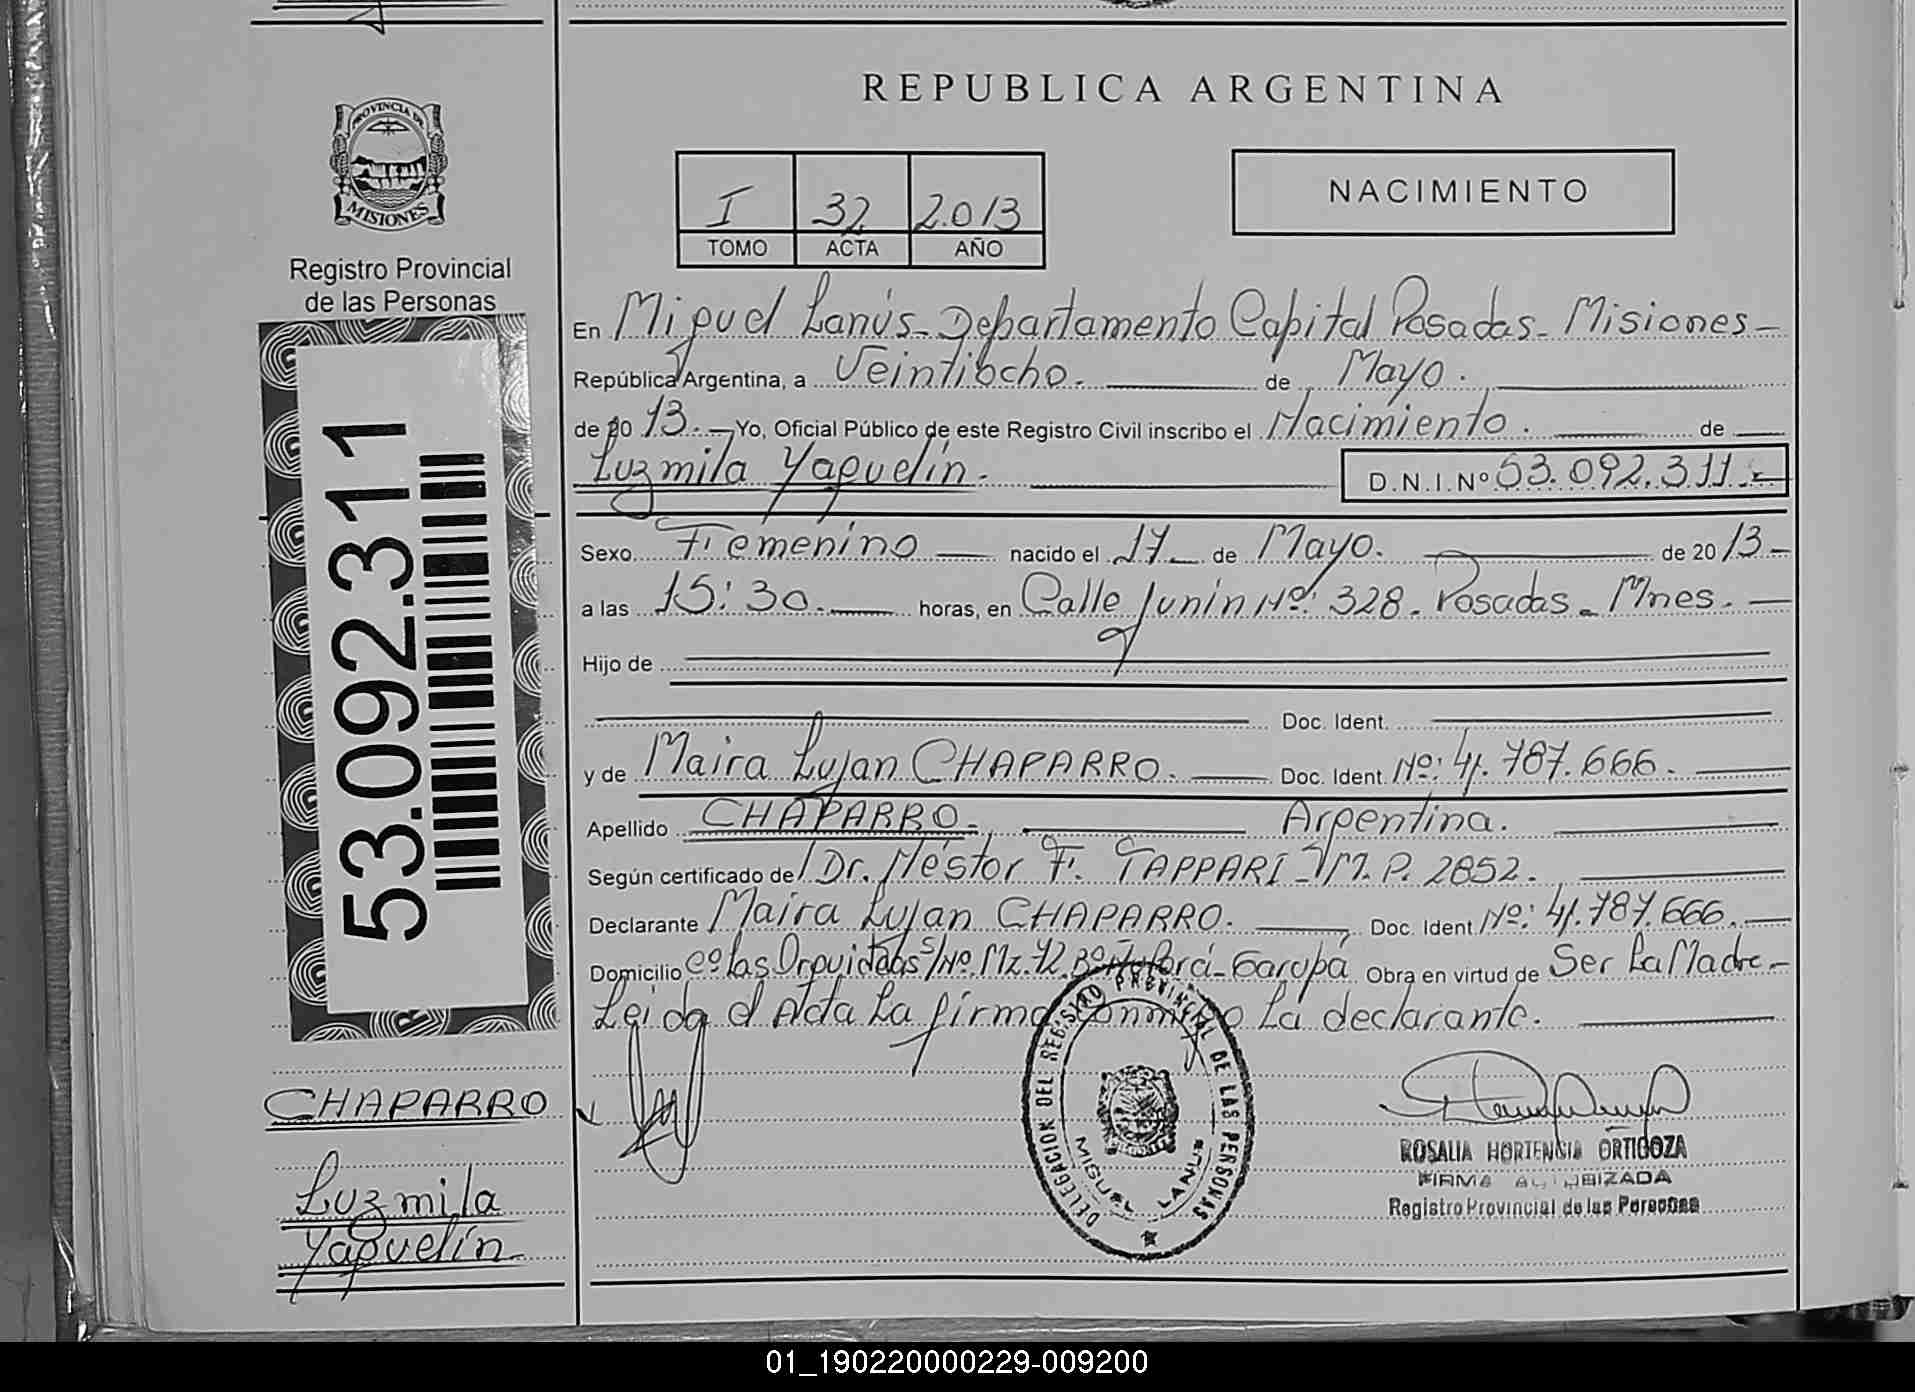 REPUBLICA ARGENTINA
PROVINCIA DE
MISIONES
Registro Provincial
de las Personas
I 32 2.013
TOMO ACTA AÑO
NACIMIENTO
En Miguel Lanús - Departamento Capital Posadas - Misiones -
República Argentina, a Veintiocho. de Mayo.
de 20 13. - Yo, Oficial Público de este Registro Civil inscribo el Nacimiento. de
Luzmila Yaquelín. D.N.I.Nº 53.092.311.-
Sexo Femenino nacido el 17 - de Mayo. de 20 13 -
a las 15:30. horas, en Calle Junín Nº: 328. Posadas - Mnes.
Hijo de
Doc. Ident.
y de Maira Lujan CHAPARRO. Doc. Ident. Nº: 41.787.666.
Apellido CHAPARRO. Argentina.
Según certificado de Dr. Néstor F. TAPPARI - M.P. 2852.
Declarante Maira Lujan CHAPARRO. Doc. Ident Nº: 41.787.666.
Domicilio Cº Las Orquídeas S/Nº. Mz. 72. Bº Garupá Obra en virtud de Ser La Madre -
Leida el Acta La firma conmigo La declarante.
53.092.311
CHAPARRO
Luzmila
Yaquelín
DELEGACION DEL REGISTRO PROVINCIAL DE LAS PERSONAS
MIGUEL LANUS
ROSALIA HORTENSIA ORTIGOZA
FIRMA AUTORIZADA
Registro Provincial de las Personas
01_190220000229-009200